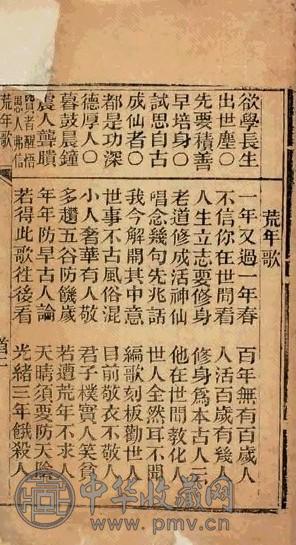 欲學長生
出世塵〇
先要積善
早培身〇
試思自古
成仙者〇
都是功深
德厚人〇
暮鼓晨鐘
震人聾聵
賢者醒悟
愚人弗信
荒年歌
一年又過一年春 百年無有百歲人
不信你在世間看 人活百歲有幾人
人生立志要修身 修身為本古人云
老道修成活神仙 他在世間教化人
唱念幾句先兆話 世人全然耳不聞
我今解開其中意 編歌刻板勸世人
世事不古風俗混 目前敬衣不敬人
小人奢華有人敬 君子樸實人笑貧
多趲五谷防饑歲 若遭荒年不求人
年年防旱古人論 天晴須要防天陰
若得此歌徃後看 光緒三年餓殺人
荒年歌
中华收藏网
www.pmv.cn